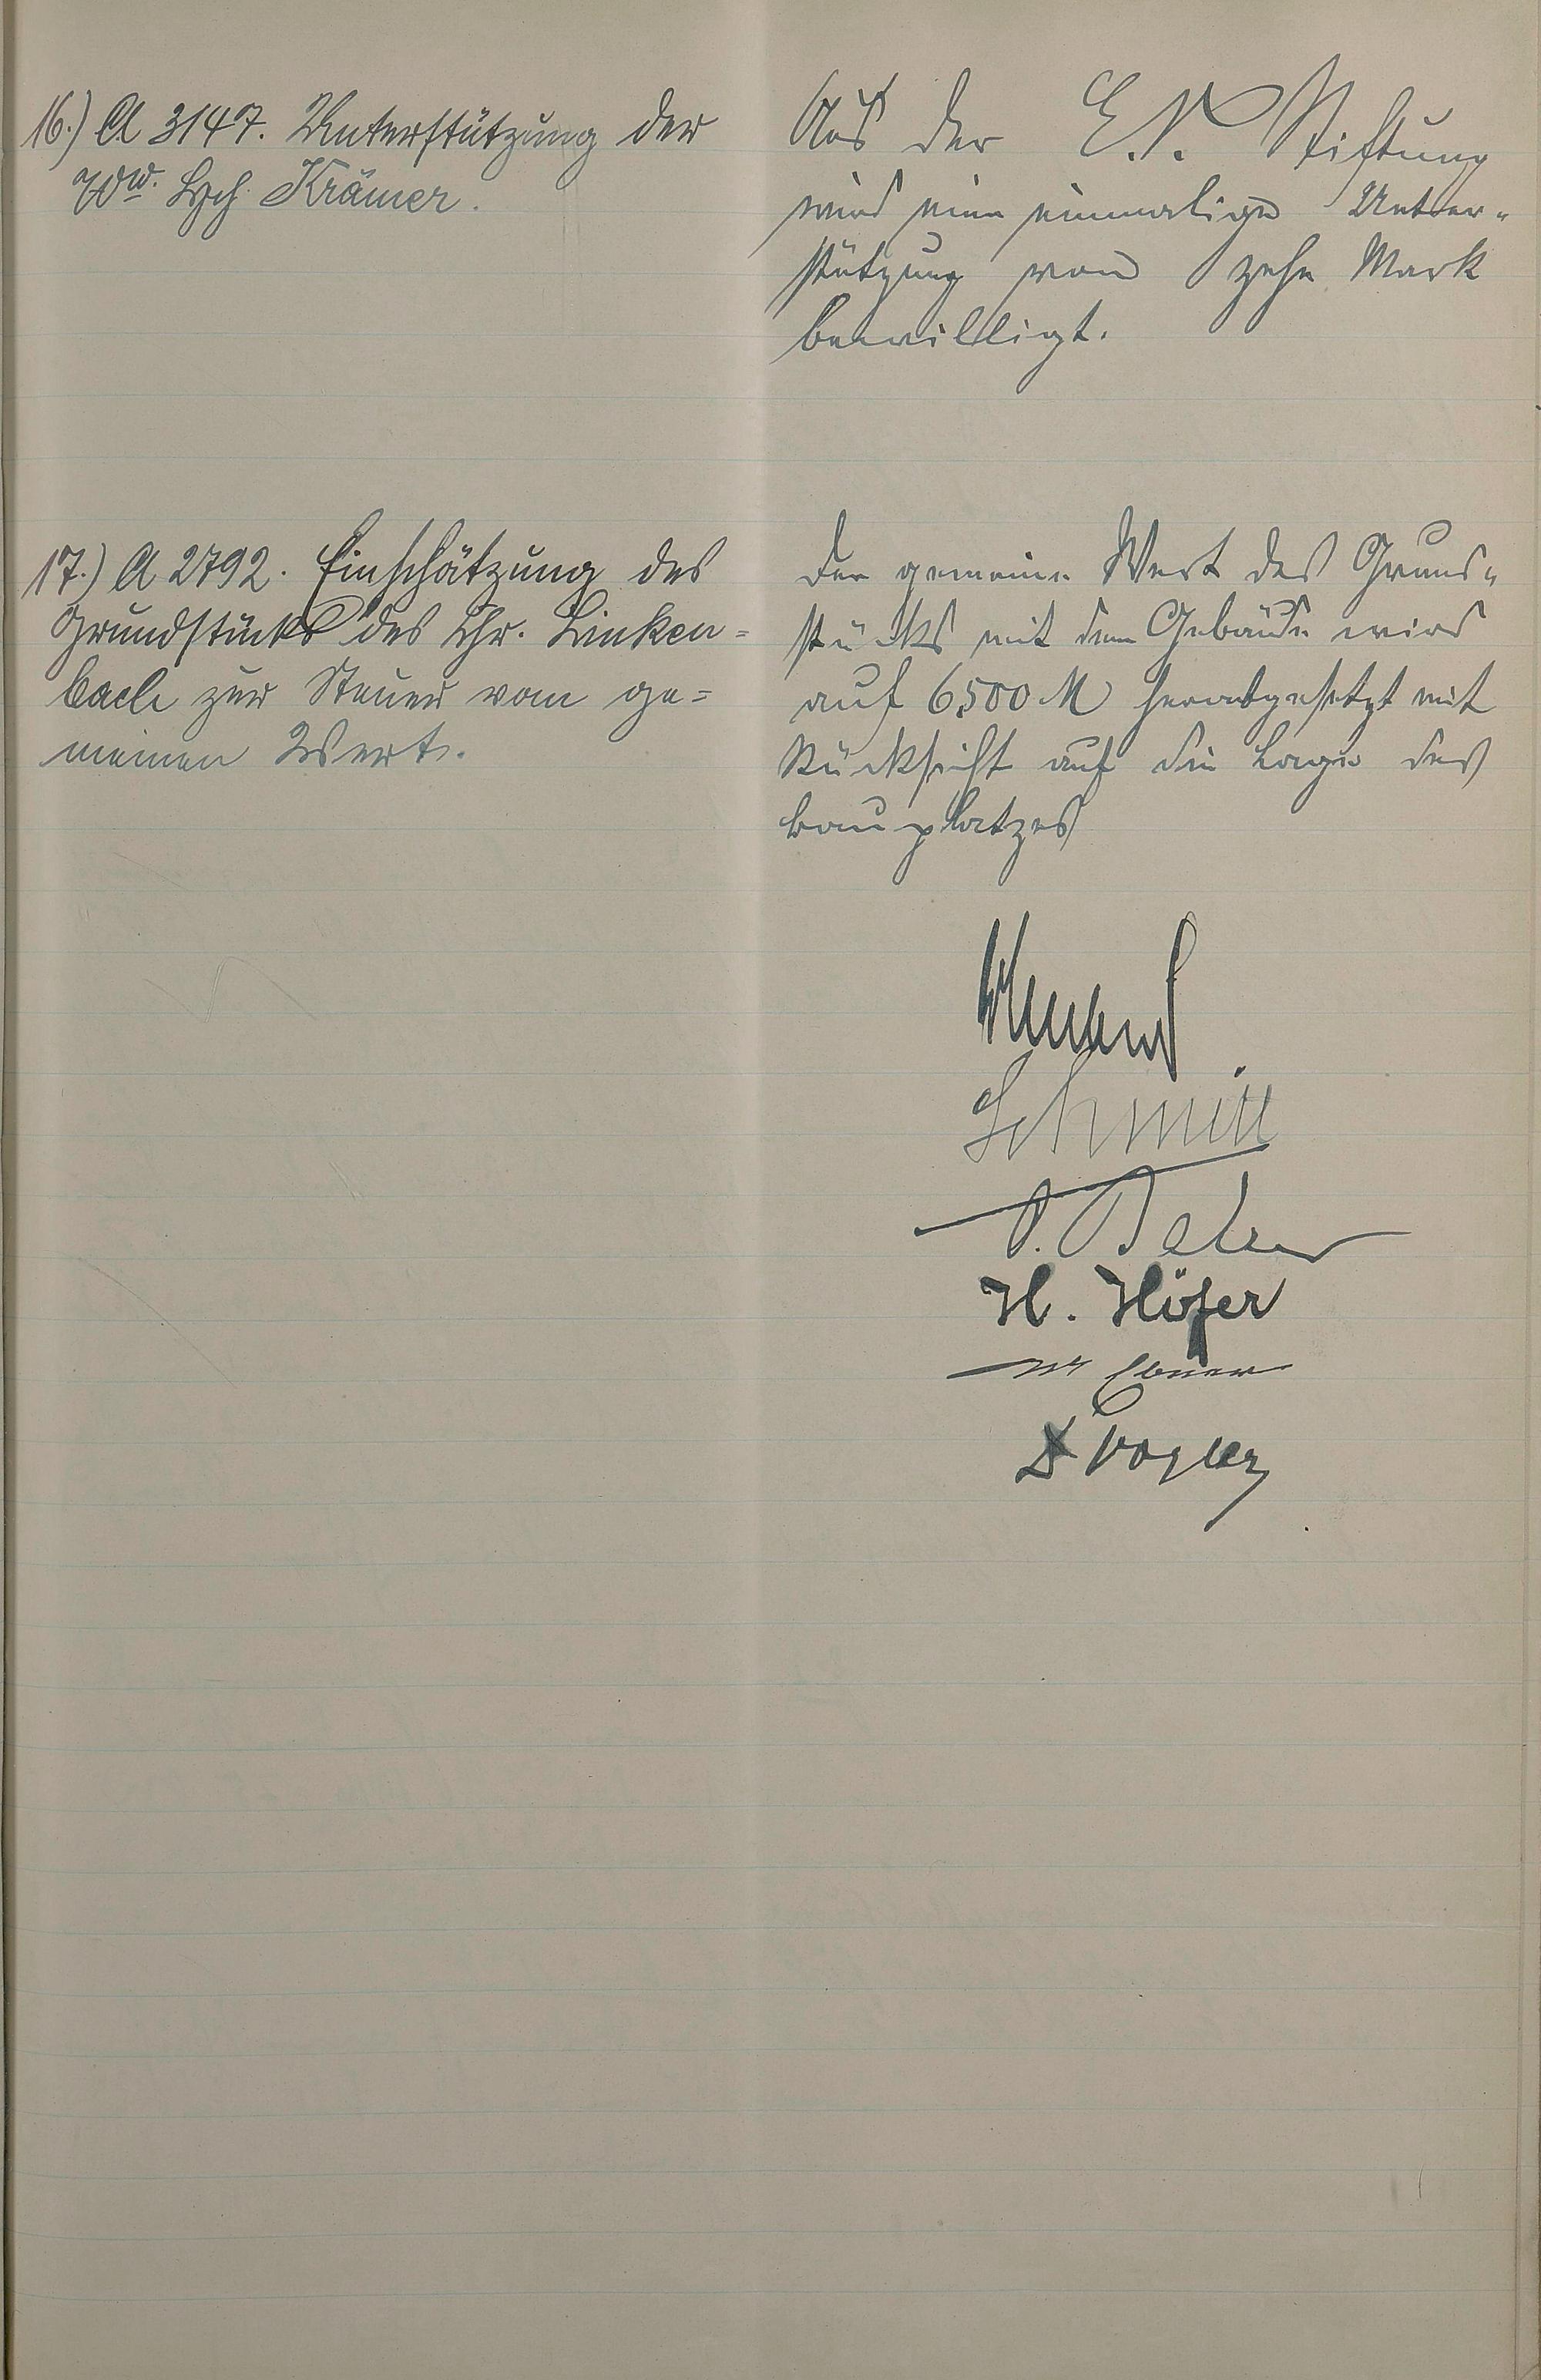 16.) A 3147. Unterstützung der
Ww. Krämer.
Aus der E. N. Stiftung
wird eine einmalige Unter-
stützung von zehn Mark
bewilligt.
17.) A 2792. Einschätzung des
Grundstücks des Chr. Linken=
bach zur Steuer vom ge=
meinen Wert.
Der gemeine Wert des Grund-
stücks mit dem Gebäude wird
auf 6500 M herabgesetzt mit
Rücksicht auf die Lage des
Bauplatzes
Schmitt
H. Höfer
Ebner
Vogler